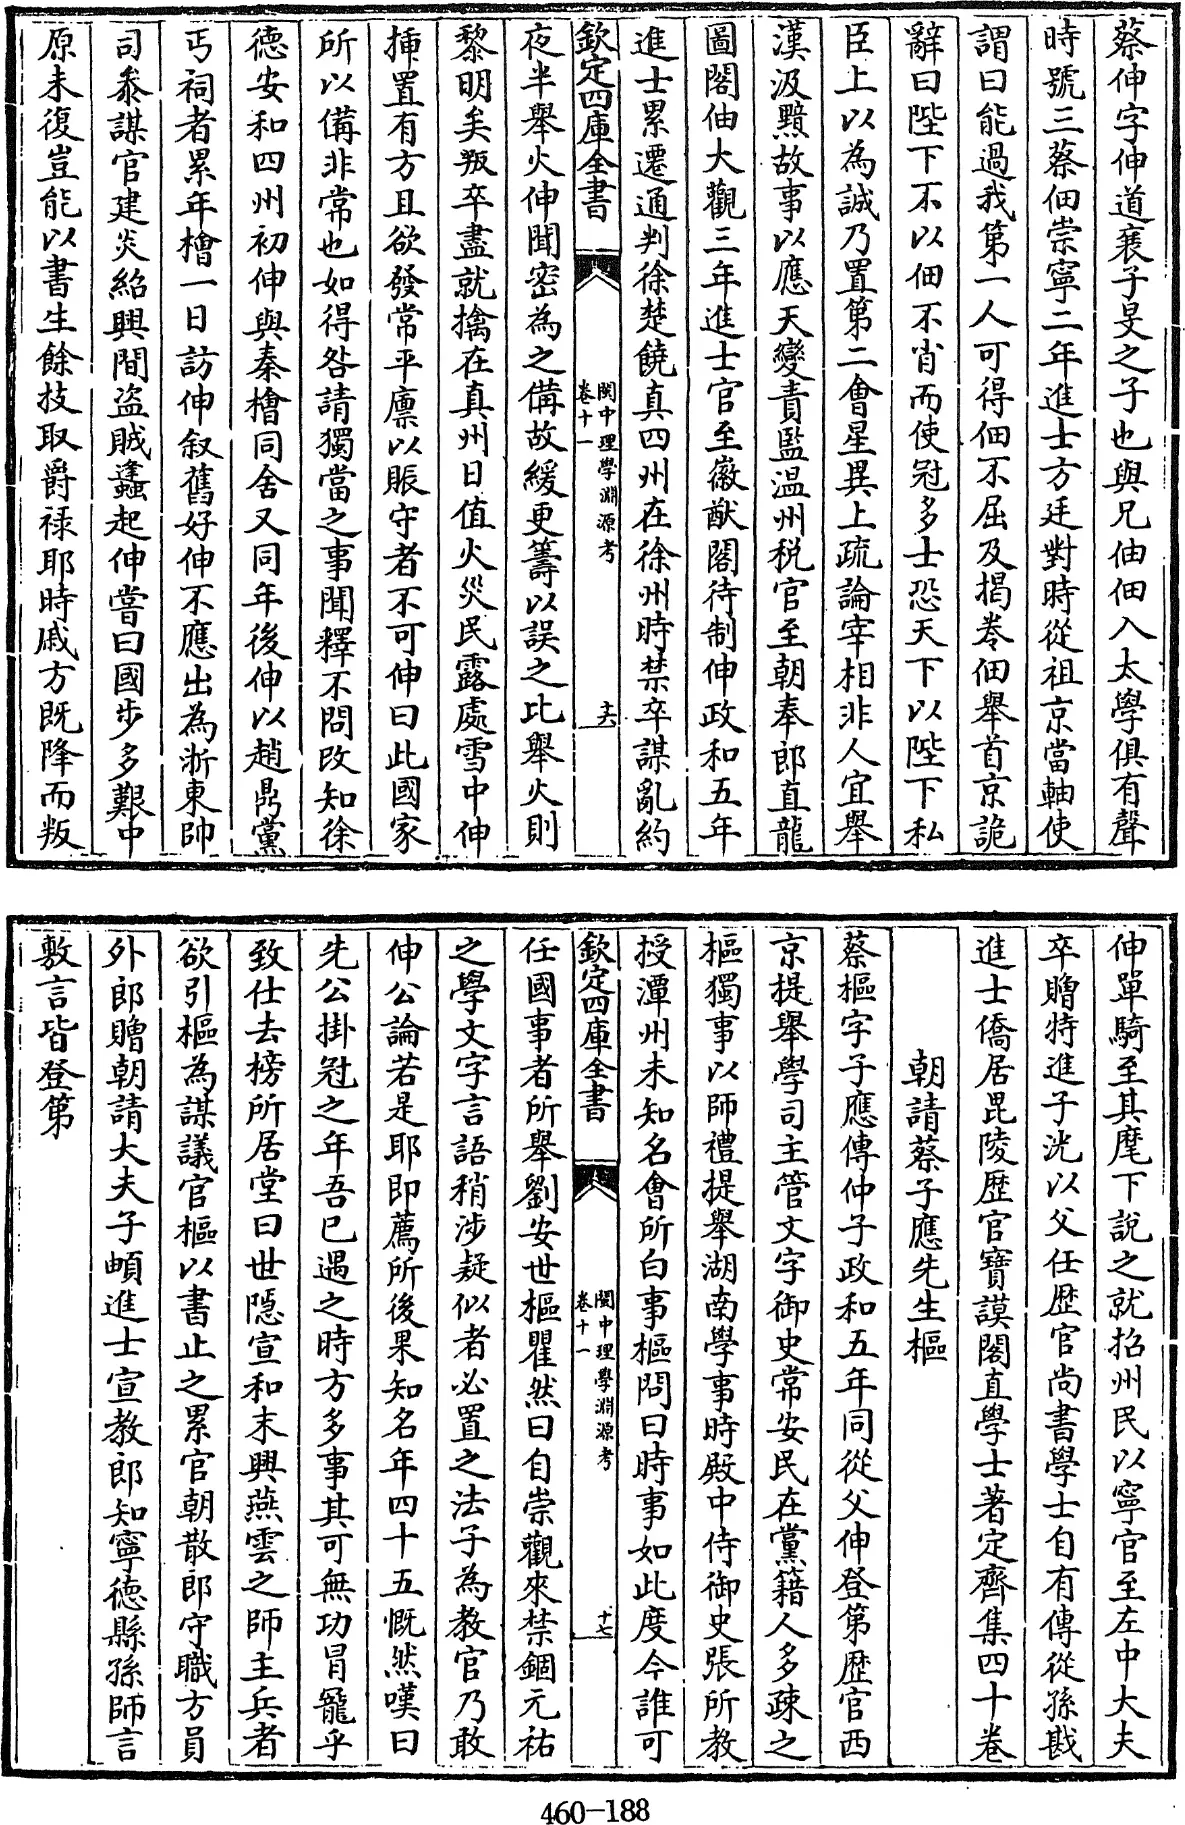 蔡伸字伸道襄子旻之子也與兄伷佃入太學俱有聲
時號三蔡佃崇寧二年進士方廷對時從祖京當軸使
謂曰能過我第一人可得佃不屈及揭卷佃舉首京詭
辭曰陛下不以佃不肖而使冠多士恐天下以陛下私
臣上以為誠乃置第二會星異上疏論宰相非人宜舉
漢汲黯故事以應天變責監温州税官至朝奉郎直龍
圖閣伷大觀三年進士官至徽猷閣待制伸政和五年
進士累遷通判徐楚饒真四州在徐州時禁卒謀亂約
欽定四庫全書
閩中理學淵源考
卷十一
十六
夜半舉火伸聞密為之備故緩更籌以誤之比舉火則
黎明矣叛卒盡就擒在真州日值火災民露處雪中伸
揷置有方且欲發常平廪以賑守者不可伸曰此國家
所以備非常也如得咎請獨當之事聞釋不問改知徐
德安和四州初伸與秦檜同舍又同年後伸以趙鼎黨
丐祠者累年檜一日訪伸叙舊好伸不應出為浙東帥
司叅謀官建炎紹興間盗賊蠭起伸嘗曰國步多艱中
原未復豈能以書生餘技取爵禄耶時戚方既降而叛
伸單騎至其麾下說之就招州民以寧官至左中大夫
卒贈特進子洸以父任歷官尚書學士自有傳從孫戡
進士僑居毘陵歴官寶謨閣直學士著定齊集四十卷
朝請蔡子應先生樞
蔡樞字子應傳仲子政和五年同從父伸登第歴官西
京提舉學司主管文字御史常安民在黨籍人多疎之
樞獨事以師禮提舉湖南學事時殿中侍御史張所教
授潭州未知名會所白事樞問曰時事如此度今誰可
欽定四庫全書
閩中理學淵源考
卷十一
十七
任國事者所舉劉安世樞瞿然曰自崇觀來禁錮元祐
之學文字言語稍涉疑似者必置之法子為教官乃敢
伸公論若是耶即薦所後果知名年四十五慨然嘆曰
先公掛冠之年吾已遇之時方多事其可無功冒寵乎
致仕去榜所居堂曰世隱宣和末興燕雲之師主兵者
欲引樞為謀議官樞以書止之累官朝散郎守職方員
外郎贈朝請大夫子䪼進士宣教郎知寧德縣孫師言
敷言皆登第
460-188